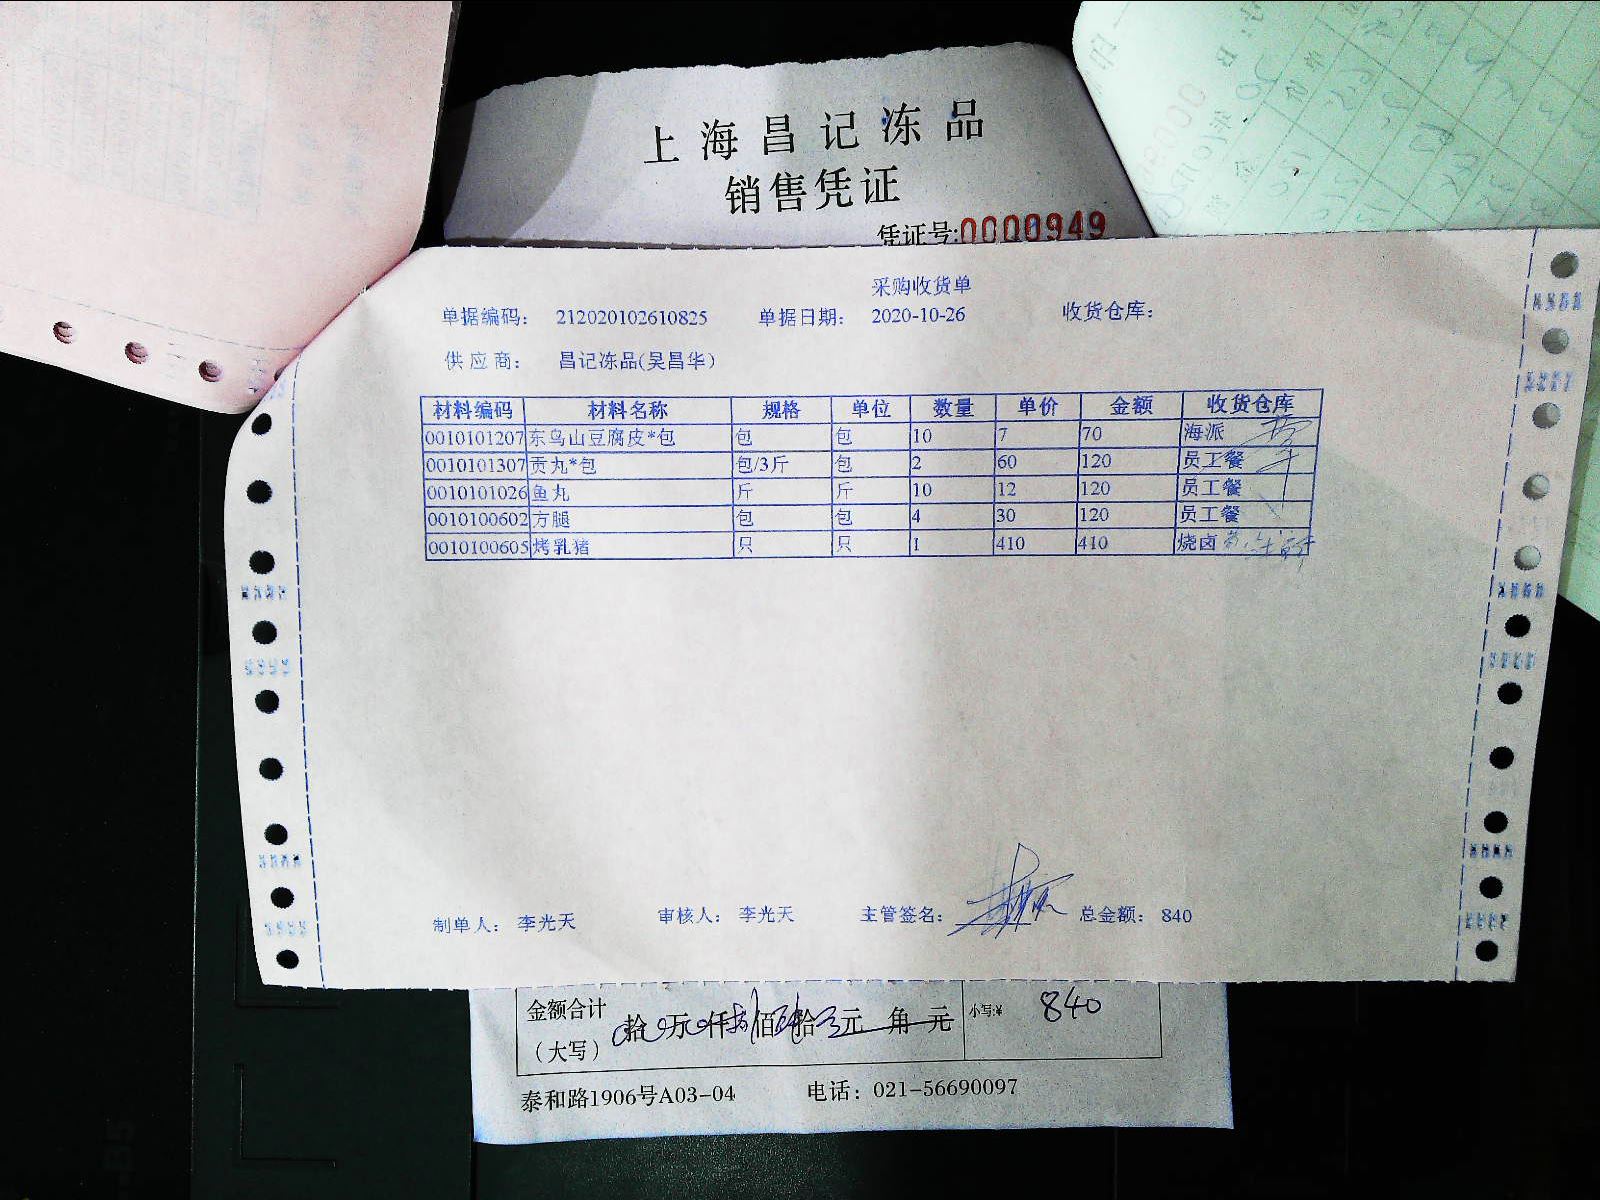 上海昌记冻品
销售凭证
凭证号:0000949
采购收货单
单据编码: 212020102610825 单据日期: 2020-10-26 收货仓库:
供应商: 昌记冻品(吴昌华)
材料编码 材料名称 规格 单位 数量 单价 金额 收货仓库
0010101207 东鸟山豆腐皮*包 包 包 10 7 70 海派
0010101307 贡丸*包 包/3斤 包 2 60 120 员工餐
0010101026 鱼丸 斤 斤 10 12 120 员工餐
0010100602 方腿 包 包 4 30 120 员工餐
0010100605 烤乳猪 只 只 1 410 410 烧卤
制单人: 李光天 审核人: 李光天 主管签名: 总金额: 840
金额合计
(大写) 拾 万 仟 佰 拾 元 角 元 小写:¥ 840
泰和路1906号A03-04 电话: 021-56690097